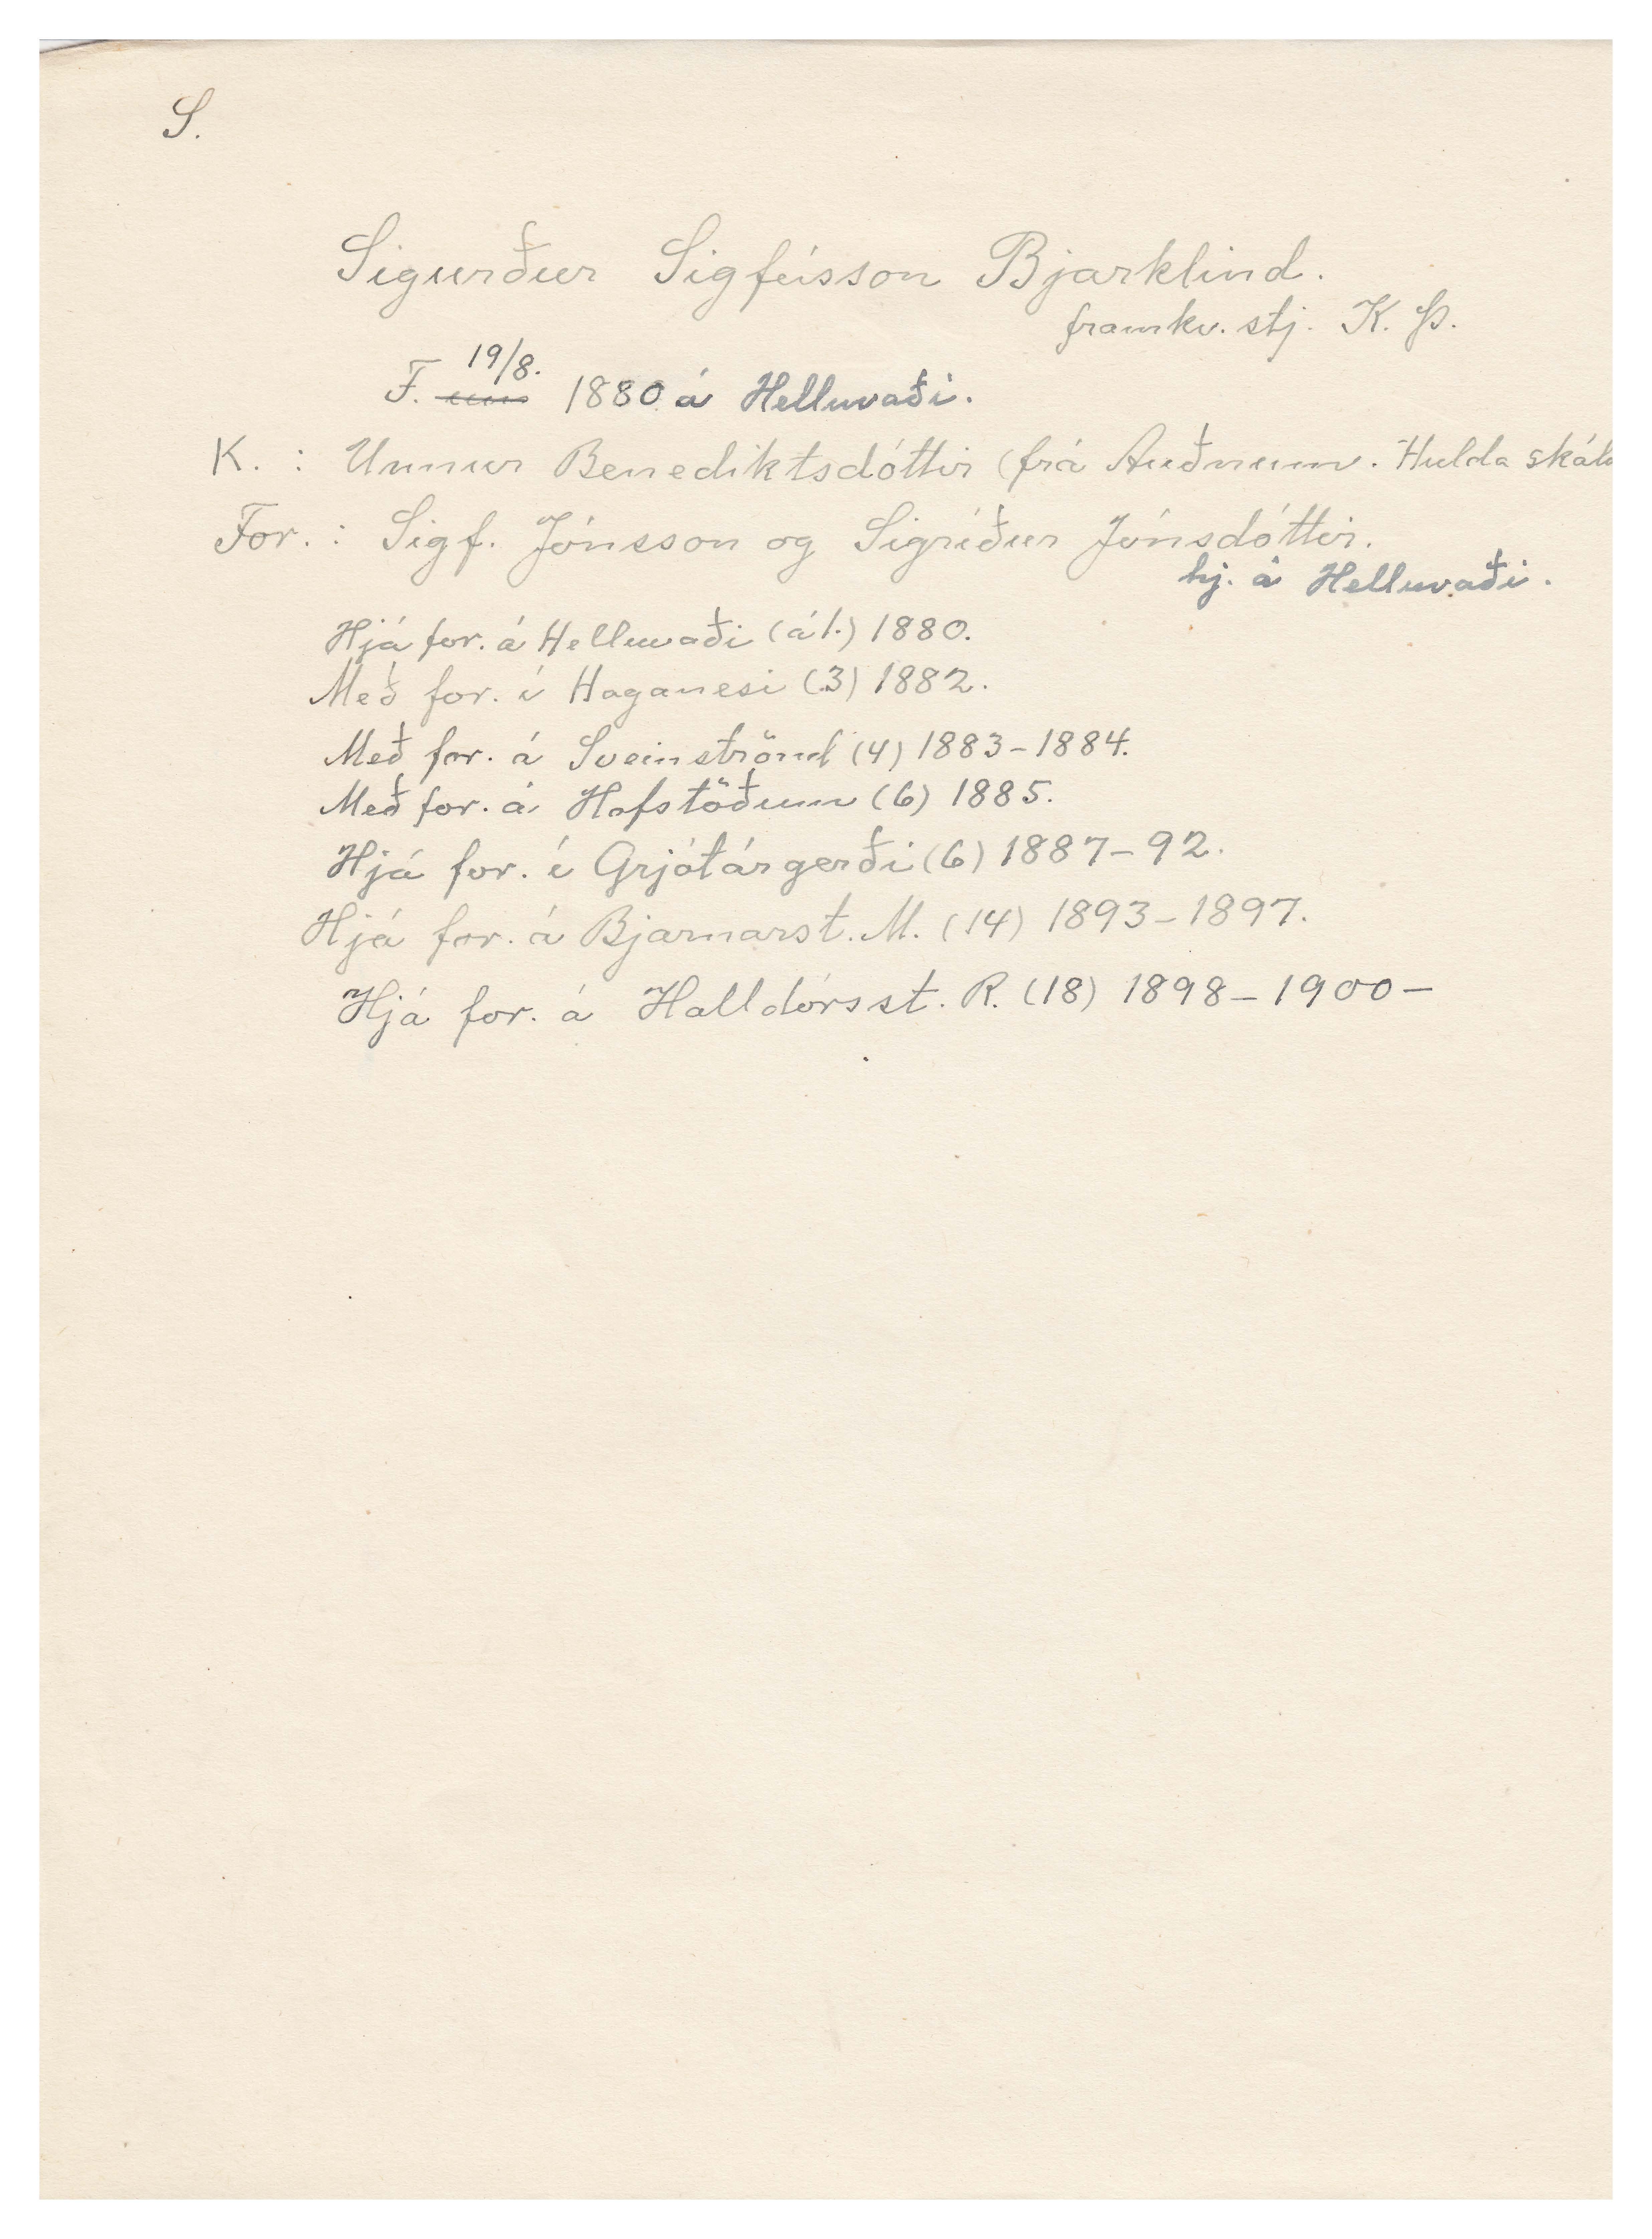 S.
Sigurður Sigfússon Bjarklind.
framkv. stj. K. Þ.
19/8.
F. 1880 á Helluvaði.
K. : Unnur Benediktsdóttir (frá Auðnum. Hulda skáld
For. : Sigf. Jónsson og Sigríður Jónsdóttir.
hj. á Helluvaði.
Hjá for. á Helluvaði (á 1.) 1880.
Með for. í Haganesi (3) 1882.
Með for. á Sveinströnd (4) 1883-1884.
Með for. á Hofstöðum (6) 1885.
Hjá for. í Grjótárgerði (6) 1887-92.
Hjá for. á Bjarnarst. M. (14) 1893-1897.
Hjá for. á Halldórsst. R. (18) 1898-1900-